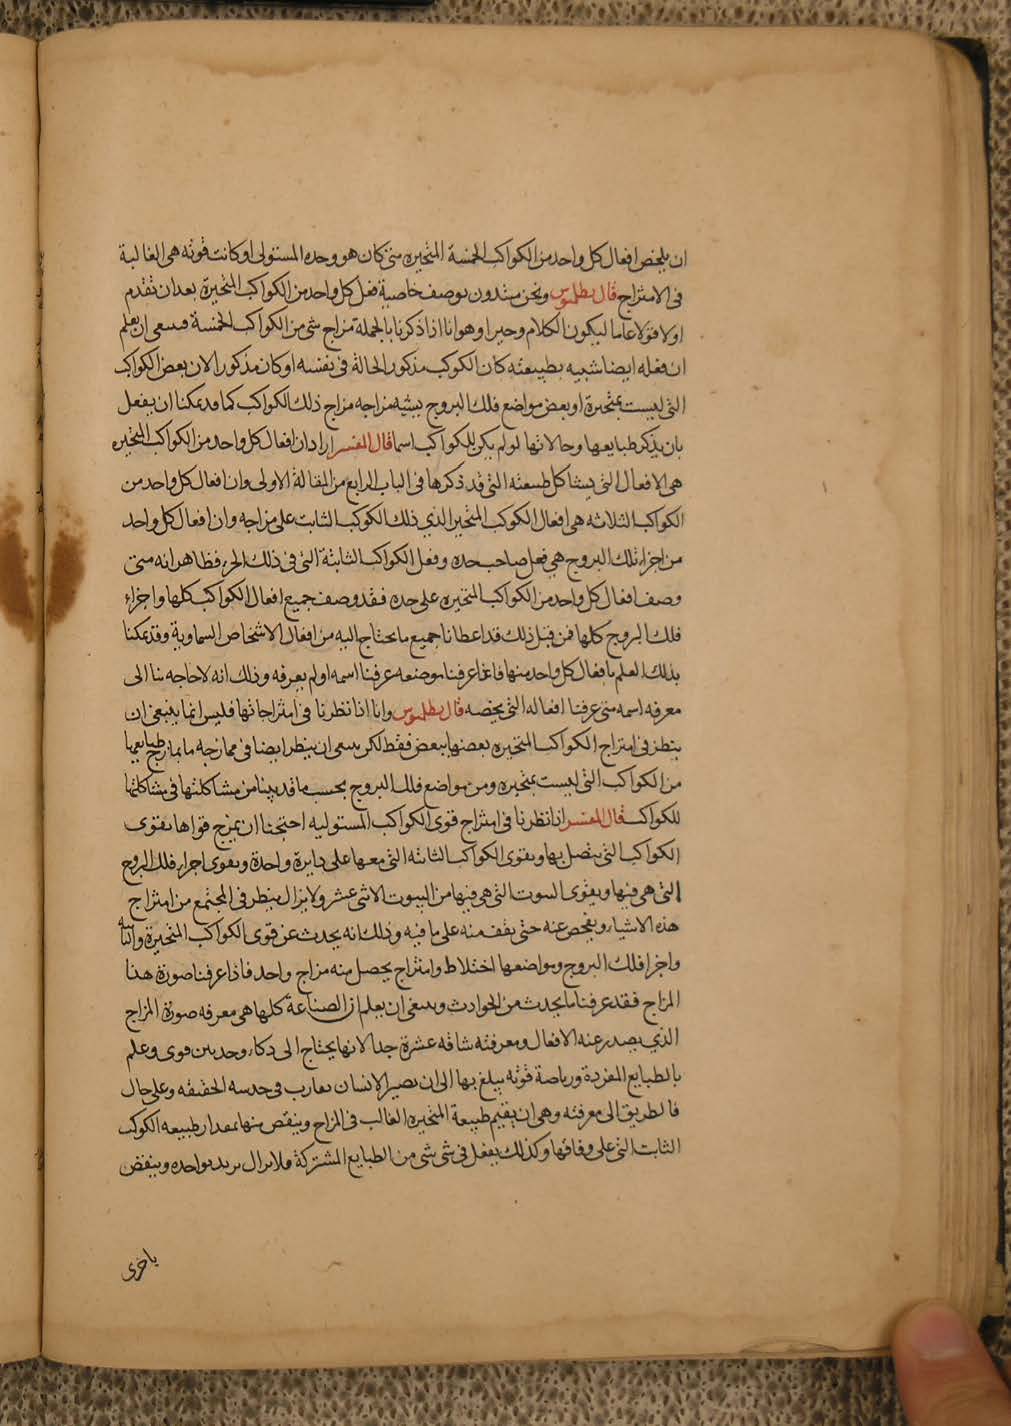 ان يلخص افعال كل واحد من الكواكب الخمسة المتحيرة متى كان هو وحده المستولى او كانت قوته هى الغالبة
فى الامتزاج قال بطلميوس ونحن مبتدون بوصف خاصية فعل كل واحد من الكواكب المتحيرة بعد ان نقدم
اولا قولا عاما ليكون الكلام وجيزا وهو انا اذا ذكرنا بالجملة مزاج شى من الكواكب الخمسة فينبغى ان يعلم
ان فعله ايضا شبيه بطبيعته كان الكوكب مذكور الحالة فى نفسه او كان مذكور الان بعض الكواكب
التى ليست بمتحيرة او بعض مواضع فلك البروج يشبه مزاجه مزاج ذلك الكواكب كما قد يمكننا ان يفعل
بان يذكر طبايعها وحالاتها لو لم يكن للكواكب اسما قال المفسر اراد ان افعال كل واحد من الكواكب المتحيره
هى الافعال التى يشاكل طبيعته التى قد ذكرها فى الباب الرابع من المقالة الاولى وان افعال كل واحد من
الكواكب الثلاثه هى افعال الكوكب المتحير الذي ذلك الكوكب الثابت على مزاجه وان افعال كل واحد
من اجزاء تلك البروج هى فعل صاحب حده وفعل الكواكب الثابتة التى فى ذلك الجزء فظاهر انه متى
وصف افعال كل واحد من الكواكب المتحيره على حده فقد وصف جميع افعال الكواكب كلها واجزاء
فلك البروج كلها فمن قبل ذلك قد اعطانا جميع ما يحتاج اليه من افعال الاشخاص السماوية وقد يمكننا
بذلك العلم بافعال كل واحد منها فاغا عرفنا موضعه عرفنا اسمه اولم يعرفه وذلك انه لا حاجه بنا الى
معرفه اسمه متى عرفنا افعاله التى يخصه قال بطلميوس وانا اذا نظرنا فى امتزاجاتها فليس انما ينبغى ان
ينظر فى امتزاج الكواكب المتحيره بعضها ببعض فقط لكن ينبغى ان ينظر ايضا فى ممازجه ما يمازج طبايعها
من الكواكب التى ليست بمتحيره ومن مواضع فلك البروج بحسب ما قد بينا من مشاكلتها فى مشاكلتها
للكواكب قال المفسر انا نظرنا فى امتزاج قوى الكواكب المستوليه احتجنا ان يمزج قواها بقوى
الكواكب التى يتصل بها وبقوى الكواكب الثابته التى معها على دايرة واحدة وبقوى اجزاء فلك البروج
التى هى فيها وبقوى البيوت التى هى فيها من البيوت الاثنى عشر ولا يزال ينظر فى المجتمع من امتزاج
هذه الاشياء ويفحص عنه حتى يقف منه على ما فيه وذلك انه يحدث عن قوى الكواكب المتحيرة والثابته
واجزا فلك البروج ومواضعها اختلاط وامتزاج يحصل منه مزاج واحد فاذا عرفنا صورة هذا
المزاج فقد عرفنا ما يحدث من الحوادث وينبغى ان يعلم ان الصناعة كلها هى معرفه صورة المزاج
الذي يصدر عنه الافعال ومعرفته شاقه عشرة جدا لانها يحتاج الى دكاء وحدس قوى وعلم
بالطبايع المفردة ورياضة قوته يبلغ بها الى ان يصير الانسان يقارب فى حدسه الحقيقه وعلى حال
فالطريق الى معرفته وهى ان يقيم طبيعة المتحيره الغالب فى المزاج وينقص منها بمقدار طبيعه الكوكب
الثابت التى على وفاقها وكذلك يفعل فى شى شى من الطبايع المشتركة ولا يزال يزيد بواحده وينقص
باخرى